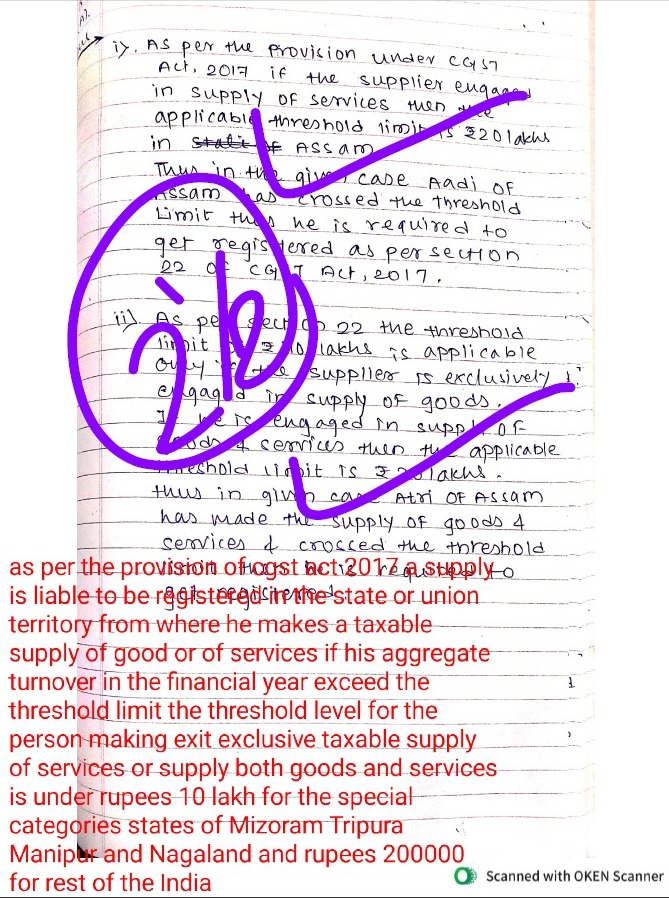 i). As per the Provision under CGST
Act, 2017 if the supplier engaged
in supply of services then the
applicable threshold limit is ₹20 lakhs
in Assam
Thus in the given case Aadi of
Assam has crossed the threshold
Limit thus he is required to
get registered as per section
22 of CGST Act, 2017.
2
ii) As per section 22 the threshold
limit lakhs is applicable
only if the supplier is exclusively
engaged in supply of goods.
If he is engaged in supply of
goods & services then the applicable
threshold limit is ₹20 lakhs.
thus in given case Atri of Assam
has made the supply of goods &
services & crossed the threshold
limit thus he is required to
get registered
as per the provision of cgst act 2017 a supply
is liable to be registered in the state or union
territory from where he makes a taxable
supply of good or of services if his aggregate
turnover in the financial year exceed the
threshold limit the threshold level for the
person making exit exclusive taxable supply
of services or supply both goods and services
is under rupees 10 lakh for the special
categories states of Mizoram Tripura
Manipur and Nagaland and rupees 200000
for rest of the India
Scanned with OKEN Scanner